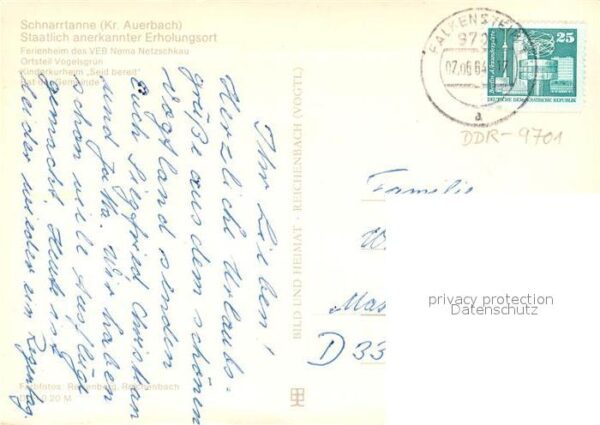 Schnarrtanne (Kr. Auerbach)
Staatlich anerkannter Erholungsort
Ferienheim des VEB Nema Netzschkau
Ortsteil Vogelsgrün
Kinderkurheim "Seid bereit"
Gemeinde
Ihr Lieben!
Herzliche Urlaubs-
grüße aus dem schönen
Vogtland senden
Euch Siegfried Christian
und Jutta. Wir haben
schon viele Ausflüge
gemacht. Heute ist
leider wieder ein Regentag.
Reichenbach
0,20 M
BILD UND HEIMAT · REICHENBACH (VOGTL)
FALKENSTEIN
07.06.84
a
25
DEUTSCHE DEMOKRATISCHE REPUBLIK
DDR-9701
Familie
W
Mas
D 33
privacy protection
Datenschutz